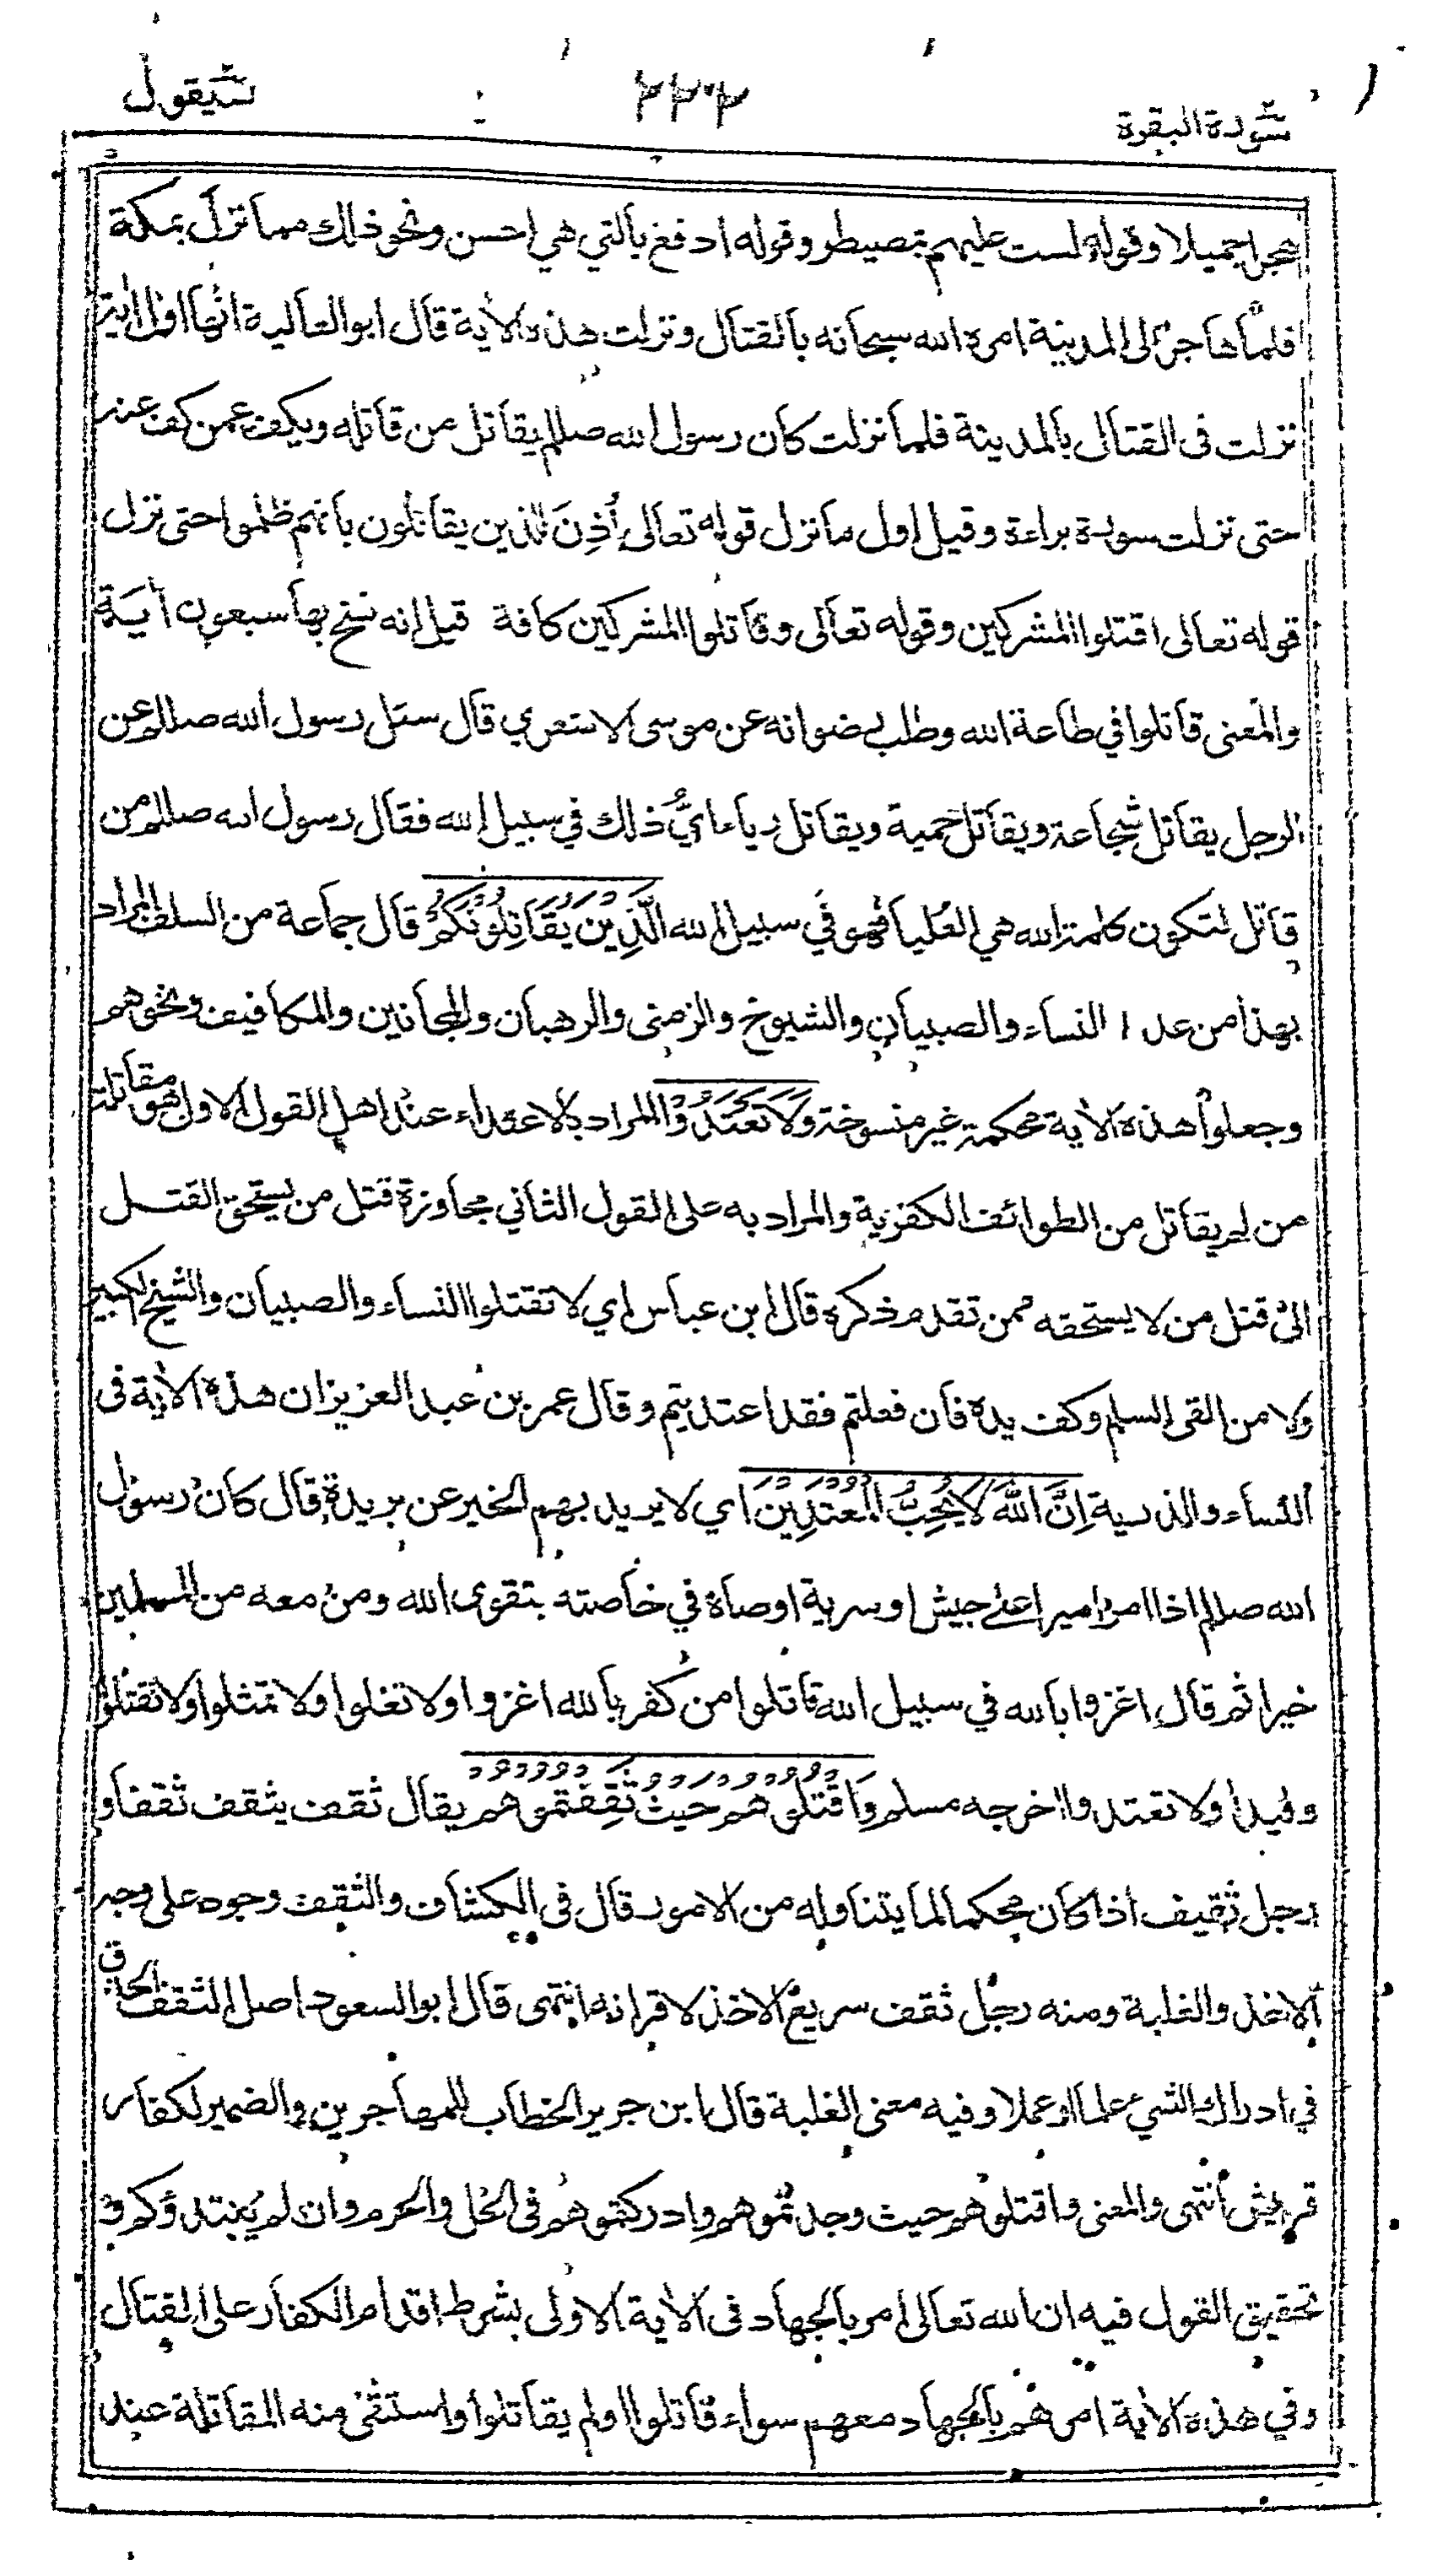 سورة البقرة ٢٣٢ سيقول
هجرا جميلا وقوله لست عليهم بمصيطر وقوله ادفع بالتي هي احسن ونحو ذلك مما نزل بمكة
فلما هاجر الى المدينة امره الله سبحانه بالقتال ونزلت هذه الاية قال ابو العالية انها اول اية
نزلت فى القتال بالمدينة فلما نزلت كان رسول الله صللم يقاتل من قاتله ويكف عمن كف عنه
حتى نزلت سورة براءة وقيل اول ما نزل قوله تعالى أُذِنَ للذين يقاتلون بانهم ظلموا حتى نزل
قوله تعالى اقتلوا المشركين وقوله تعالى وقاتلوا المشركين كافة قيل انه نسخ بها سبعون اية
والمعنى قاتلوا في طاعة الله وطلب رضوانه عن موسى الاشعري قال سئل رسول الله صللم عن
الرجل يقاتل شجاعة ويقاتل حمية ويقاتل رياء ايُّ ذلك في سبيل الله فقال رسول الله صللم من
قاتل لتكون كلمة الله هي العُليا فهو في سبيل الله الَّذِيْنَ يُقَاتِلُوْنَكُمْ قال جماعة من السلف المراد
بهذا من عدا النساء والصبيان والشيوخ والزمنى والرهبان والمجانين والمكافيف ونحوهم
وجعلوا هذه الاية محكمة غير منسوخة وَلَا تَعْتَدُوْا والمراد بالاعتداء عند اهل القول الاول هو مقاتلة
من لم يقاتل من الطوائف الكفرية والمراد به على القول الثاني مجاوزة قتل من يستحق القتل
الى قتل من لا يستحقه ممن تقدم ذكره قال ابن عباس اي لا تقتلوا النساء والصبيان والشيخ الكبير
ولا من القى السلم وكف يده فان فعلتم فقد اعتديتم وقال عمر بن عبد العزيز ان هذه الاية فى
النساء والذرية اِنَّ اللّٰهَ لَا يُحِبُّ الْمُعْتَدِيْنَ اي لا يريد بهم الخير عن بريدة قال كان رسول
الله صللم اذا امر اميرا على جيش او سرية اوصاه في خاصته بتقوى الله ومن معه من المسلمين
خيرا ثم قال اغزوا بالله في سبيل الله قاتلوا من كفر بالله اغزوا ولا تغلوا ولا تمثلوا ولا تقتلوا
وليدا ولا تعتدوا اخرجه مسلم وَاقْتُلُوْهُمْ حَيْثُ ثَقِفْتُمُوْهُمْ يقال ثقف يثقف ثقفا و
رجل ثقيف اذا كان محكما لما يتناوله من الامور قال فى الكشاف والثقف وجوده على وجه
الاخذ والغلبة ومنه رجل ثقف سريع الاخذ لاقرانه انتهى قال ابو السعود اصل الثقف الحذق
في ادراك الشيء علما او عملا وفيه معنى الغلبة قال ابن جرير الخطاب للمهاجرين والضمير لكفار
قريش انتهى والمعنى واقتلوهم حيث وجدتموهم وادركتموهم فى الحل والحرم وان لم يبتدؤكم و
تحقيق القول فيه ان الله تعالى امر بالجهاد فى الاية الاولى بشرط اقدام الكفار على القتال
وفي هذه الاية امرهم بالجهاد معهم سواء قاتلوا او لم يقاتلوا واستثنى منه المقاتلة عند